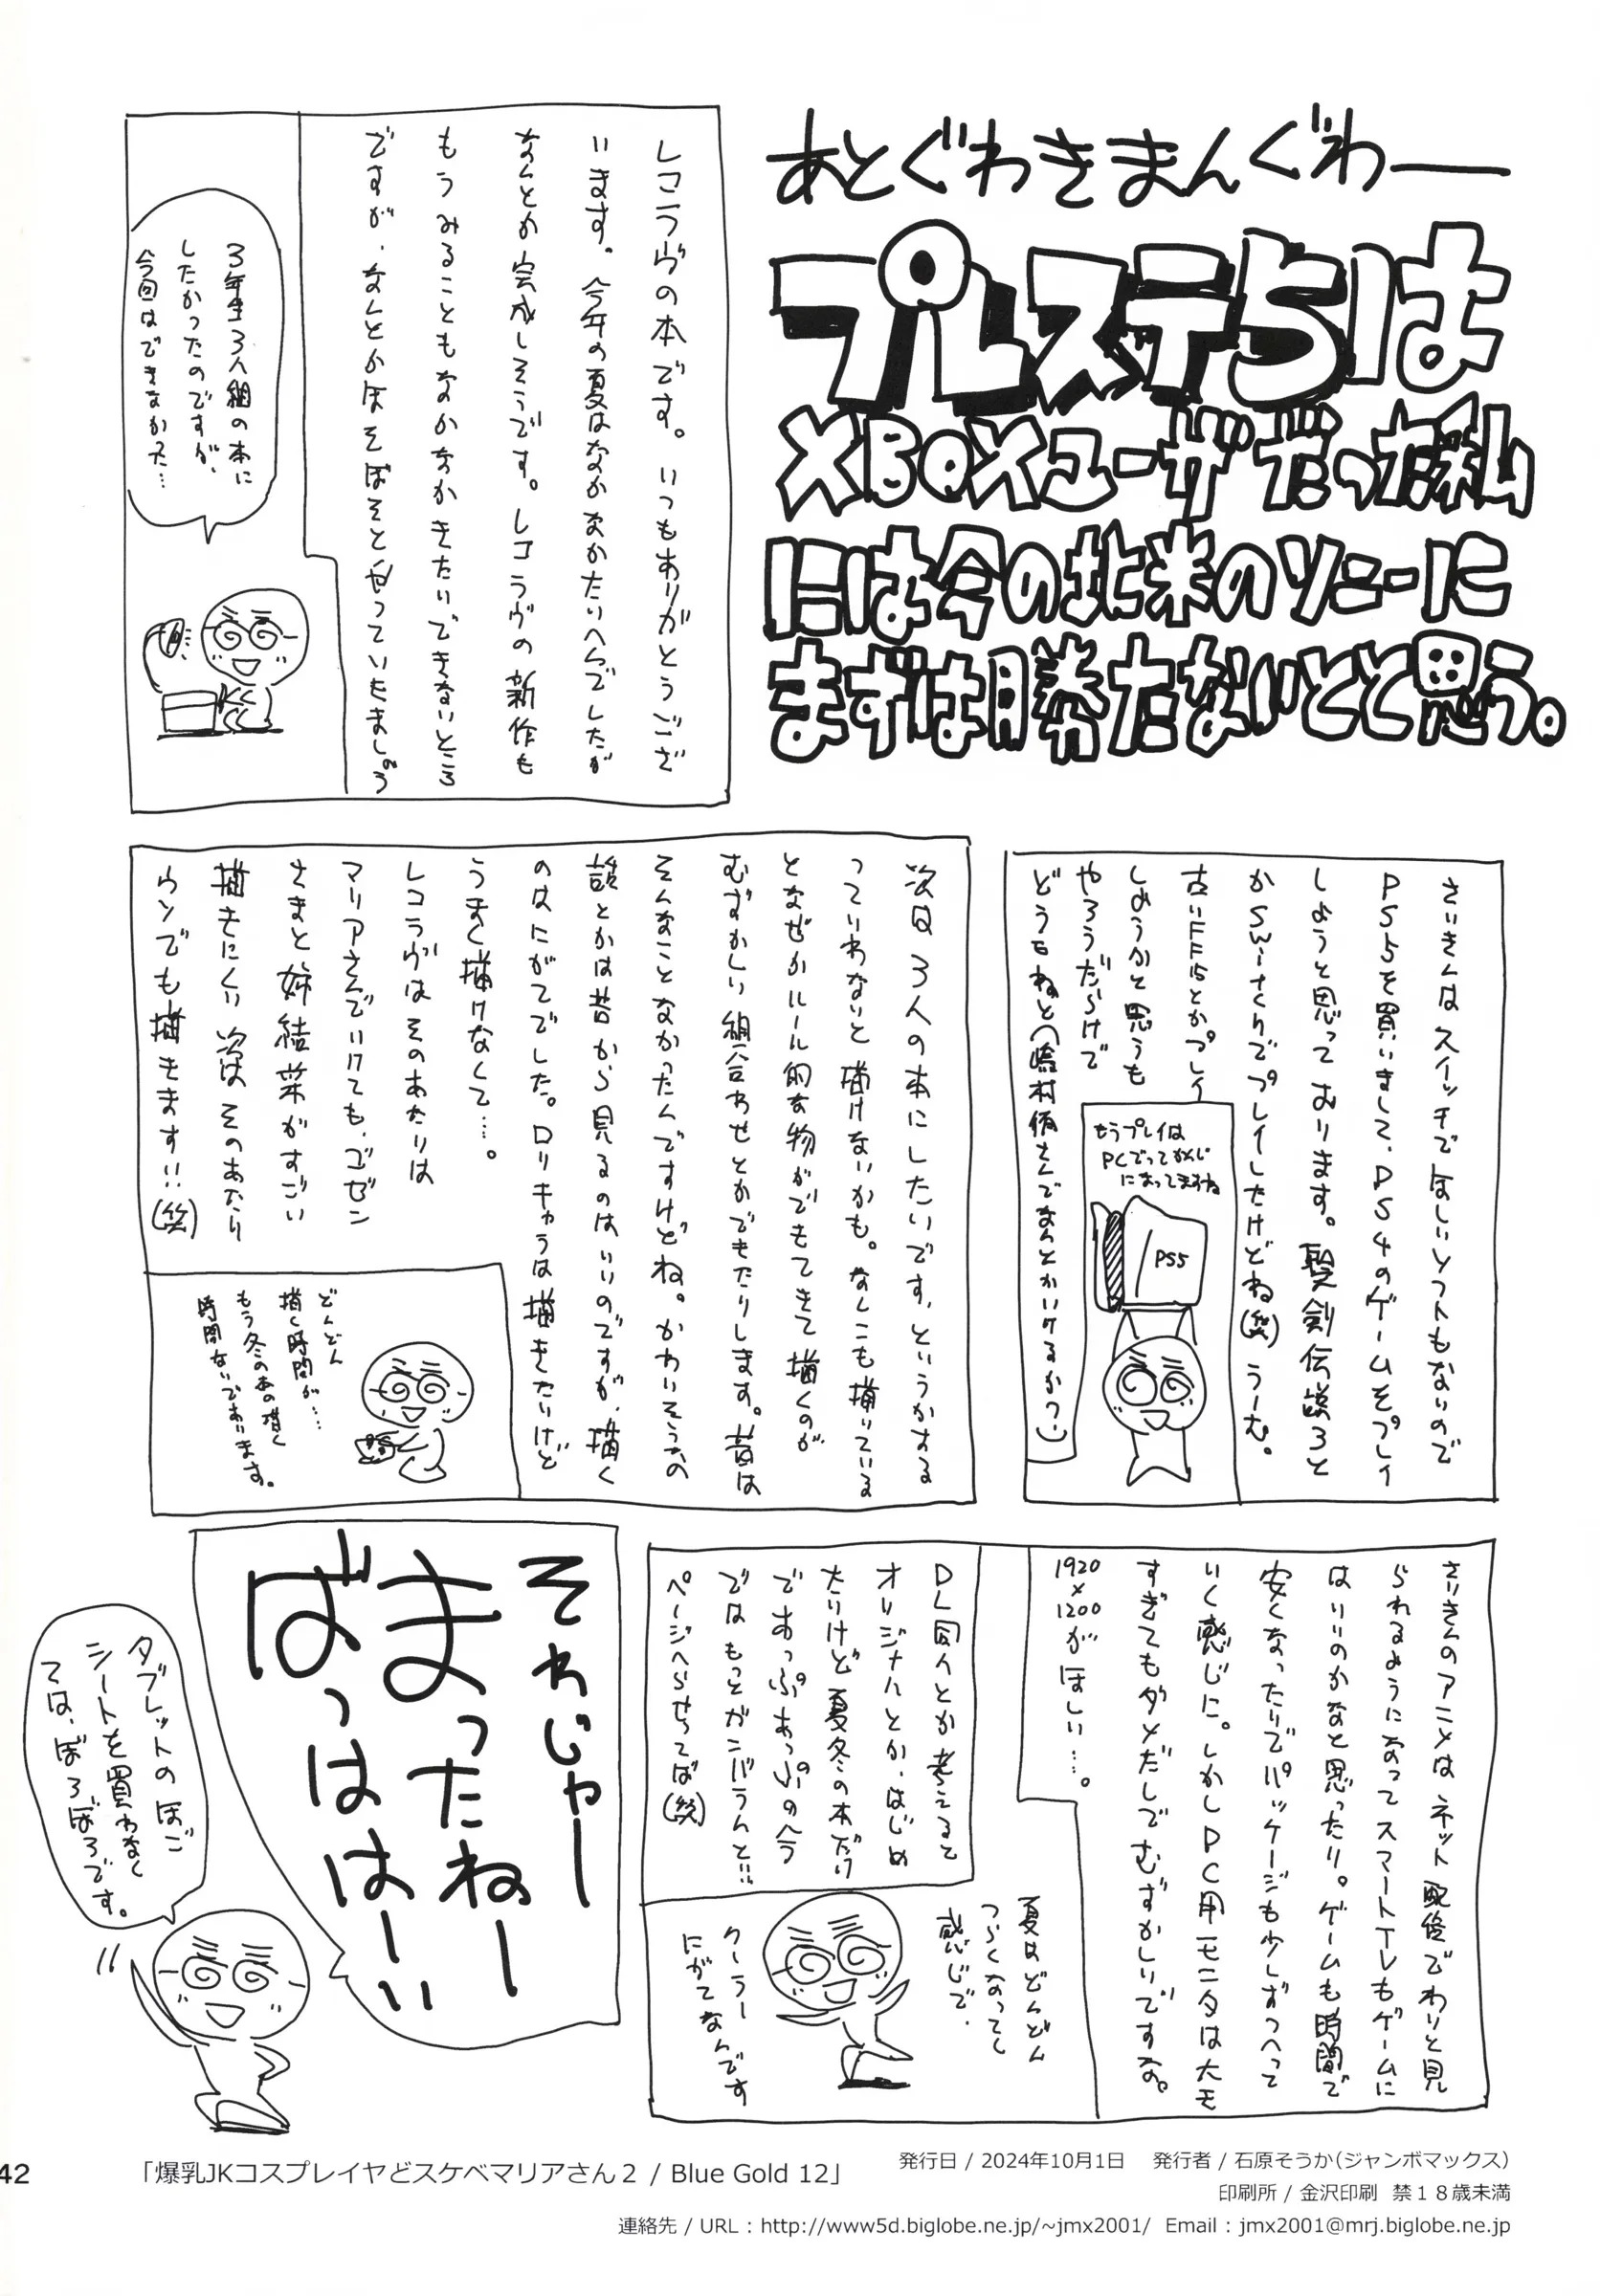 あとぐわきまんぐわー
プレステ5は
XBOXユーザだった私
には今の北米のソニーに
まずは勝たないとと思う。
レコラヴの本です。いつもありがとうござ
います。今年の夏はなかなかたいへんでしたが
なんとか完成しそうです。レコラヴの新作も
もうみることもなかなかきたいできないところ
ですが、なんとかほそぼそとやっていきましょう
3年生3人組の本に
したかったのですが、
今回はできなかった…
さいきんはスイッチでほしいソフトもないので
PS5を買いまして、PS4のゲームをプレイ
しようと思っております。聖剣伝説3と
かSwitchでプレイしたけどね(笑)うーむ。
古いFF15とかプレイ
しようかと思うも
やろうだらけで
どうもねと
もうプレイは
PCでってかんじ
になってますね
PS5
次回3人の本にしたいです、というかする
っていわないと描けないかも。なんこも描いている
となぜかルール的な物がでもてきて描くのが
むずかしい組合わせとかできたりします。昔は
そんなことなかったんですけどね。かわいそうなの
とかは昔から見るのはいいのですが、描く
のはにがてでした。ロリキャラは描きたいけど
うまく描けなくて…。
レコラヴはそのあたりは
マリアさんでいけても、ゴゼン
さまと、姉結菜がすごい
描きにくい 次は そのあたり
ウソでも描きます!!(笑)
どんどん
描く時間が…
もう冬のあの描く
時間ないであります。
さいきんのアニメはネット配信でわりと見
られるようになってスマートTVもゲームに
はいいのかなと思ったり。ゲームも時間で
安くなったりでパッケージも少しずつへって
いく感じに。しかしPC用モニタは大モ
すぎてもダメだしでむずかしいですな。
1920
×
1200がほしい…。
DL同人とか考えると
オリジナルとか、はじめ
たいけど夏冬の本だけ
であっぷあっぷのへう
ではもっとガンバらんと!!
ページへらせってば(笑)
夏はどんどん
つらくなってく
感じで、
クーラー
にがてなんです
それじゃー
まったねー
ばっははーい
タブレットのほご
シートを買わなく
ては、ぼろぼろです。
42
「爆乳JKコスプレイヤどスケベマリアさん2 / Blue Gold 12」
発行日 / 2024年10月1日　発行者 / 石原そうか(ジャンボマックス)
印刷所 / 金沢印刷　禁18歳未満
連絡先 / URL : http://www5d.biglobe.ne.jp/~jmx2001/ Email : jmx2001@mrj.biglobe.ne.jp